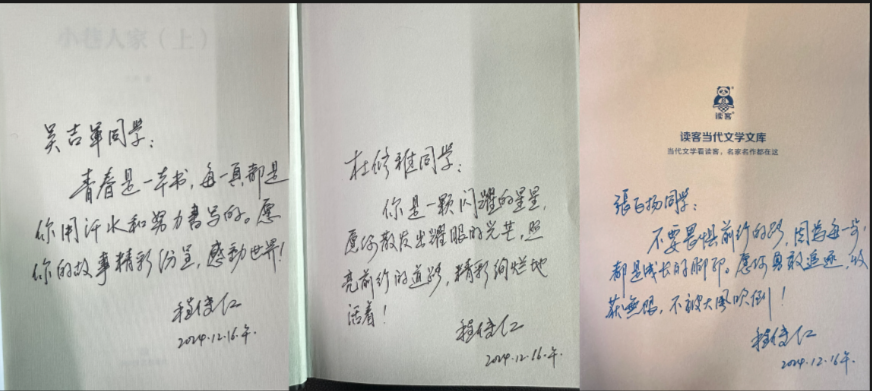 小巷人家（上）
吴吉军同学：
青春是一本书，每一页都是
你用汗水和努力书写的。愿
你的故事精彩纷呈，感动世界！
程俊仁
2024.12.16.年.
杜修雅同学：
你是一颗闪耀的星星，
愿你散发出耀眼的光芒，照
亮前行的道路，精彩绚烂地
活着！
程俊仁
2024.12.16.年.
读客
读客当代文学文库
当代文学看读客，名家名作都在这
張百扬同学：
不要畏惧前行的路，因為每一步，
都是成长的脚印。愿你勇敢追逐，收
获無限，不被大风吹倒！
程俊仁
2024.12.16.年.